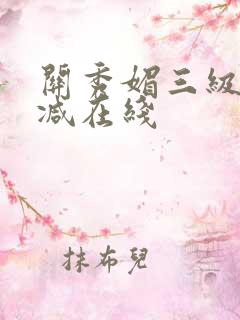 關秀媚三級
减在綫
抹布兒